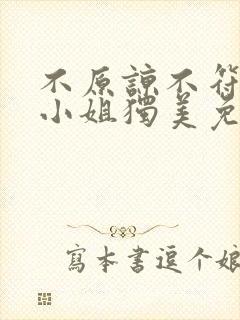 不原諒不等
小姐獨美免
寫本書逗个娘